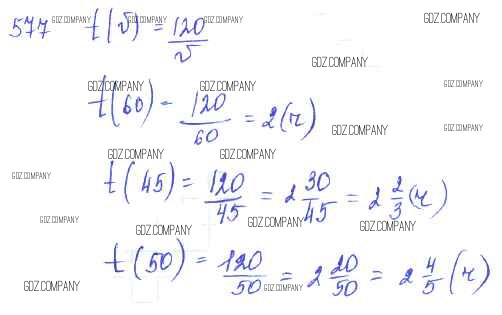 577 t(v) = 120/v
GDZ.COMPANY GDZ.COMPANY GDZ.COMPANY GDZ.COMPANY
GDZ.COMPANY
GDZ.COMPANY GDZ.COMPANY GDZ.COMPANY
t(60) - 120/60 = 2 (ч)
GDZ.COMPANY GDZ.COMPANY
GDZ.COMPANY GDZ.COMPANY
GDZ.COMPANY
t(45) = 120/45 = 2 30/45 = 2 2/3 (ч)
GDZ.COMPANY GDZ.COMPANY GDZ.COMPANY GDZ.COMPANY
t(50) = 120/50 = 2 20/50 = 2 4/5 (ч)
GDZ.COMPANY GDZ.COMPANY GDZ.COMPANY